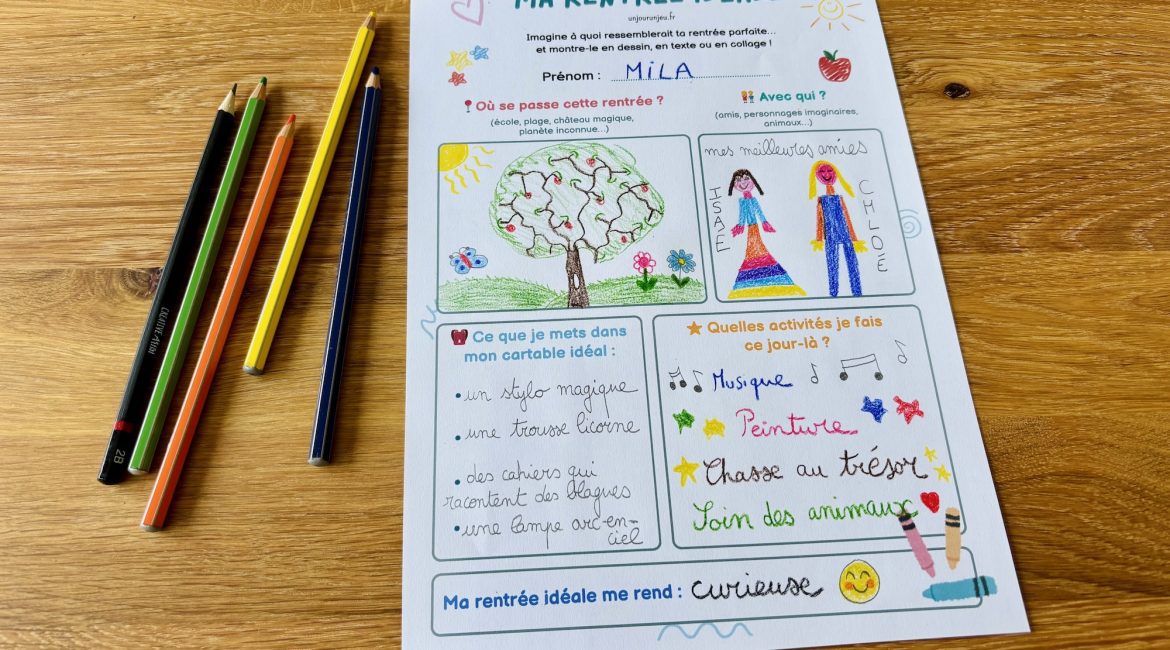 MA RENTRÉE IDÉALE
unjourunjeu.fr
Imagine à quoi ressemblerait ta rentrée parfaite...
et montre-le en dessin, en texte ou en collage !
Prénom : MiLA
Où se passe cette rentrée ?
(école, plage, château magique,
planète inconnue...)
Avec qui ?
(amis, personnages imaginaires,
animaux...)
mes meilleures amies
ISAE
CHLOE
Ce que je mets dans
mon cartable idéal :
• un stylo magique
• une trousse licorne
• des cahiers qui
racontent des blagues
• une lampe arc-en-
ciel
Quelles activités je fais
ce jour-là ?
Musique
Peinture
Chasse au trésor
Soin des animaux
Ma rentrée idéale me rend : curieuse
CREATIVE ASIAN
2B